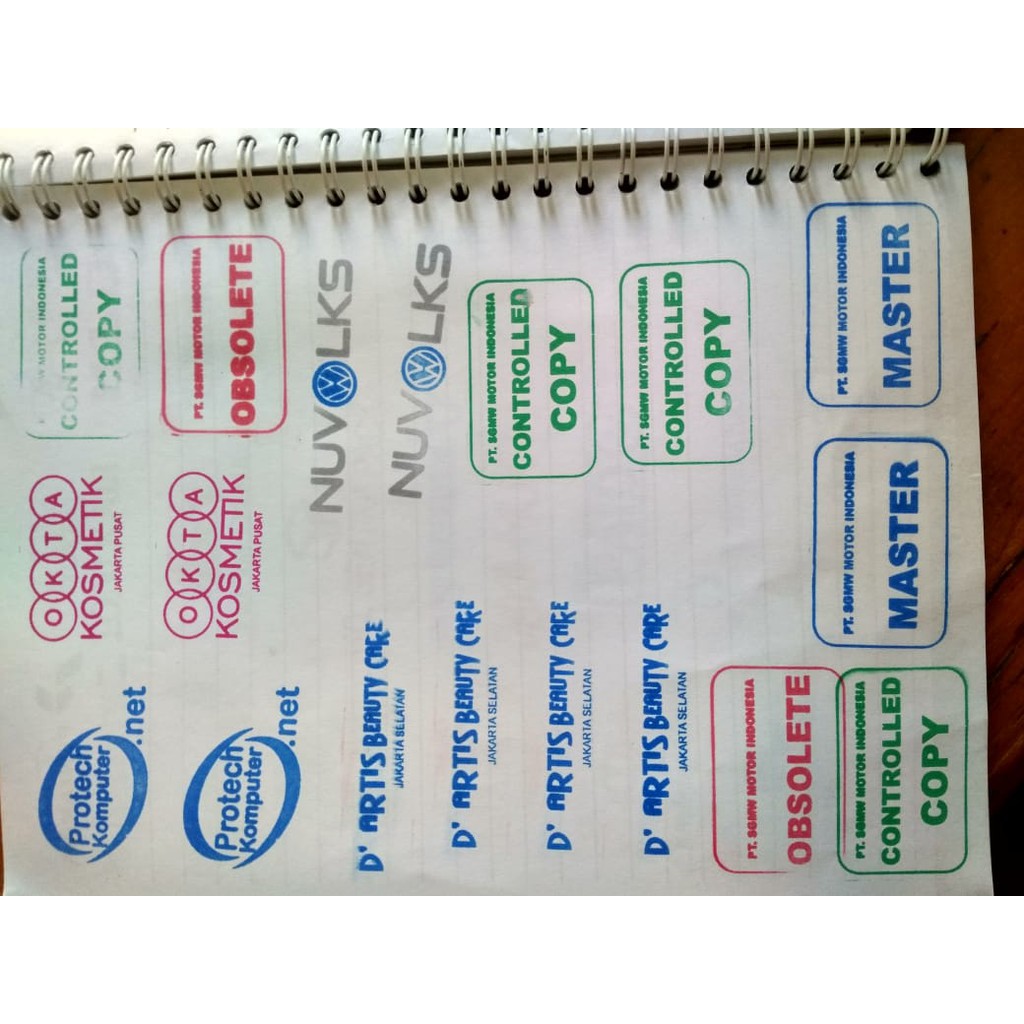 Protech
Komputer
.net
OKTA
KOSMETIK
JAKARTA PUSAT
MOTOR INDONESIA
CONTROLLED
COPY
Protech
Komputer
.net
OKTA
KOSMETIK
JAKARTA PUSAT
PT. SGMW MOTOR INDONESIA
OBSOLETE
D' ARTIS BEAUTY CARE
JAKARTA SELATAN
NUVOLKS
D' ARTIS BEAUTY CARE
JAKARTA SELATAN
NUVOLKS
D' ARTIS BEAUTY CARE
JAKARTA SELATAN
PT. SGMW MOTOR INDONESIA
CONTROLLED
COPY
D' ARTIS BEAUTY CARE
JAKARTA SELATAN
PT. SGMW MOTOR INDONESIA
CONTROLLED
COPY
PT. SGMW MOTOR INDONESIA
OBSOLETE
PT. SGMW MOTOR INDONESIA
MASTER
PT. SGMW MOTOR INDONESIA
MASTER
PT. SGMW MOTOR INDONESIA
CONTROLLED
COPY